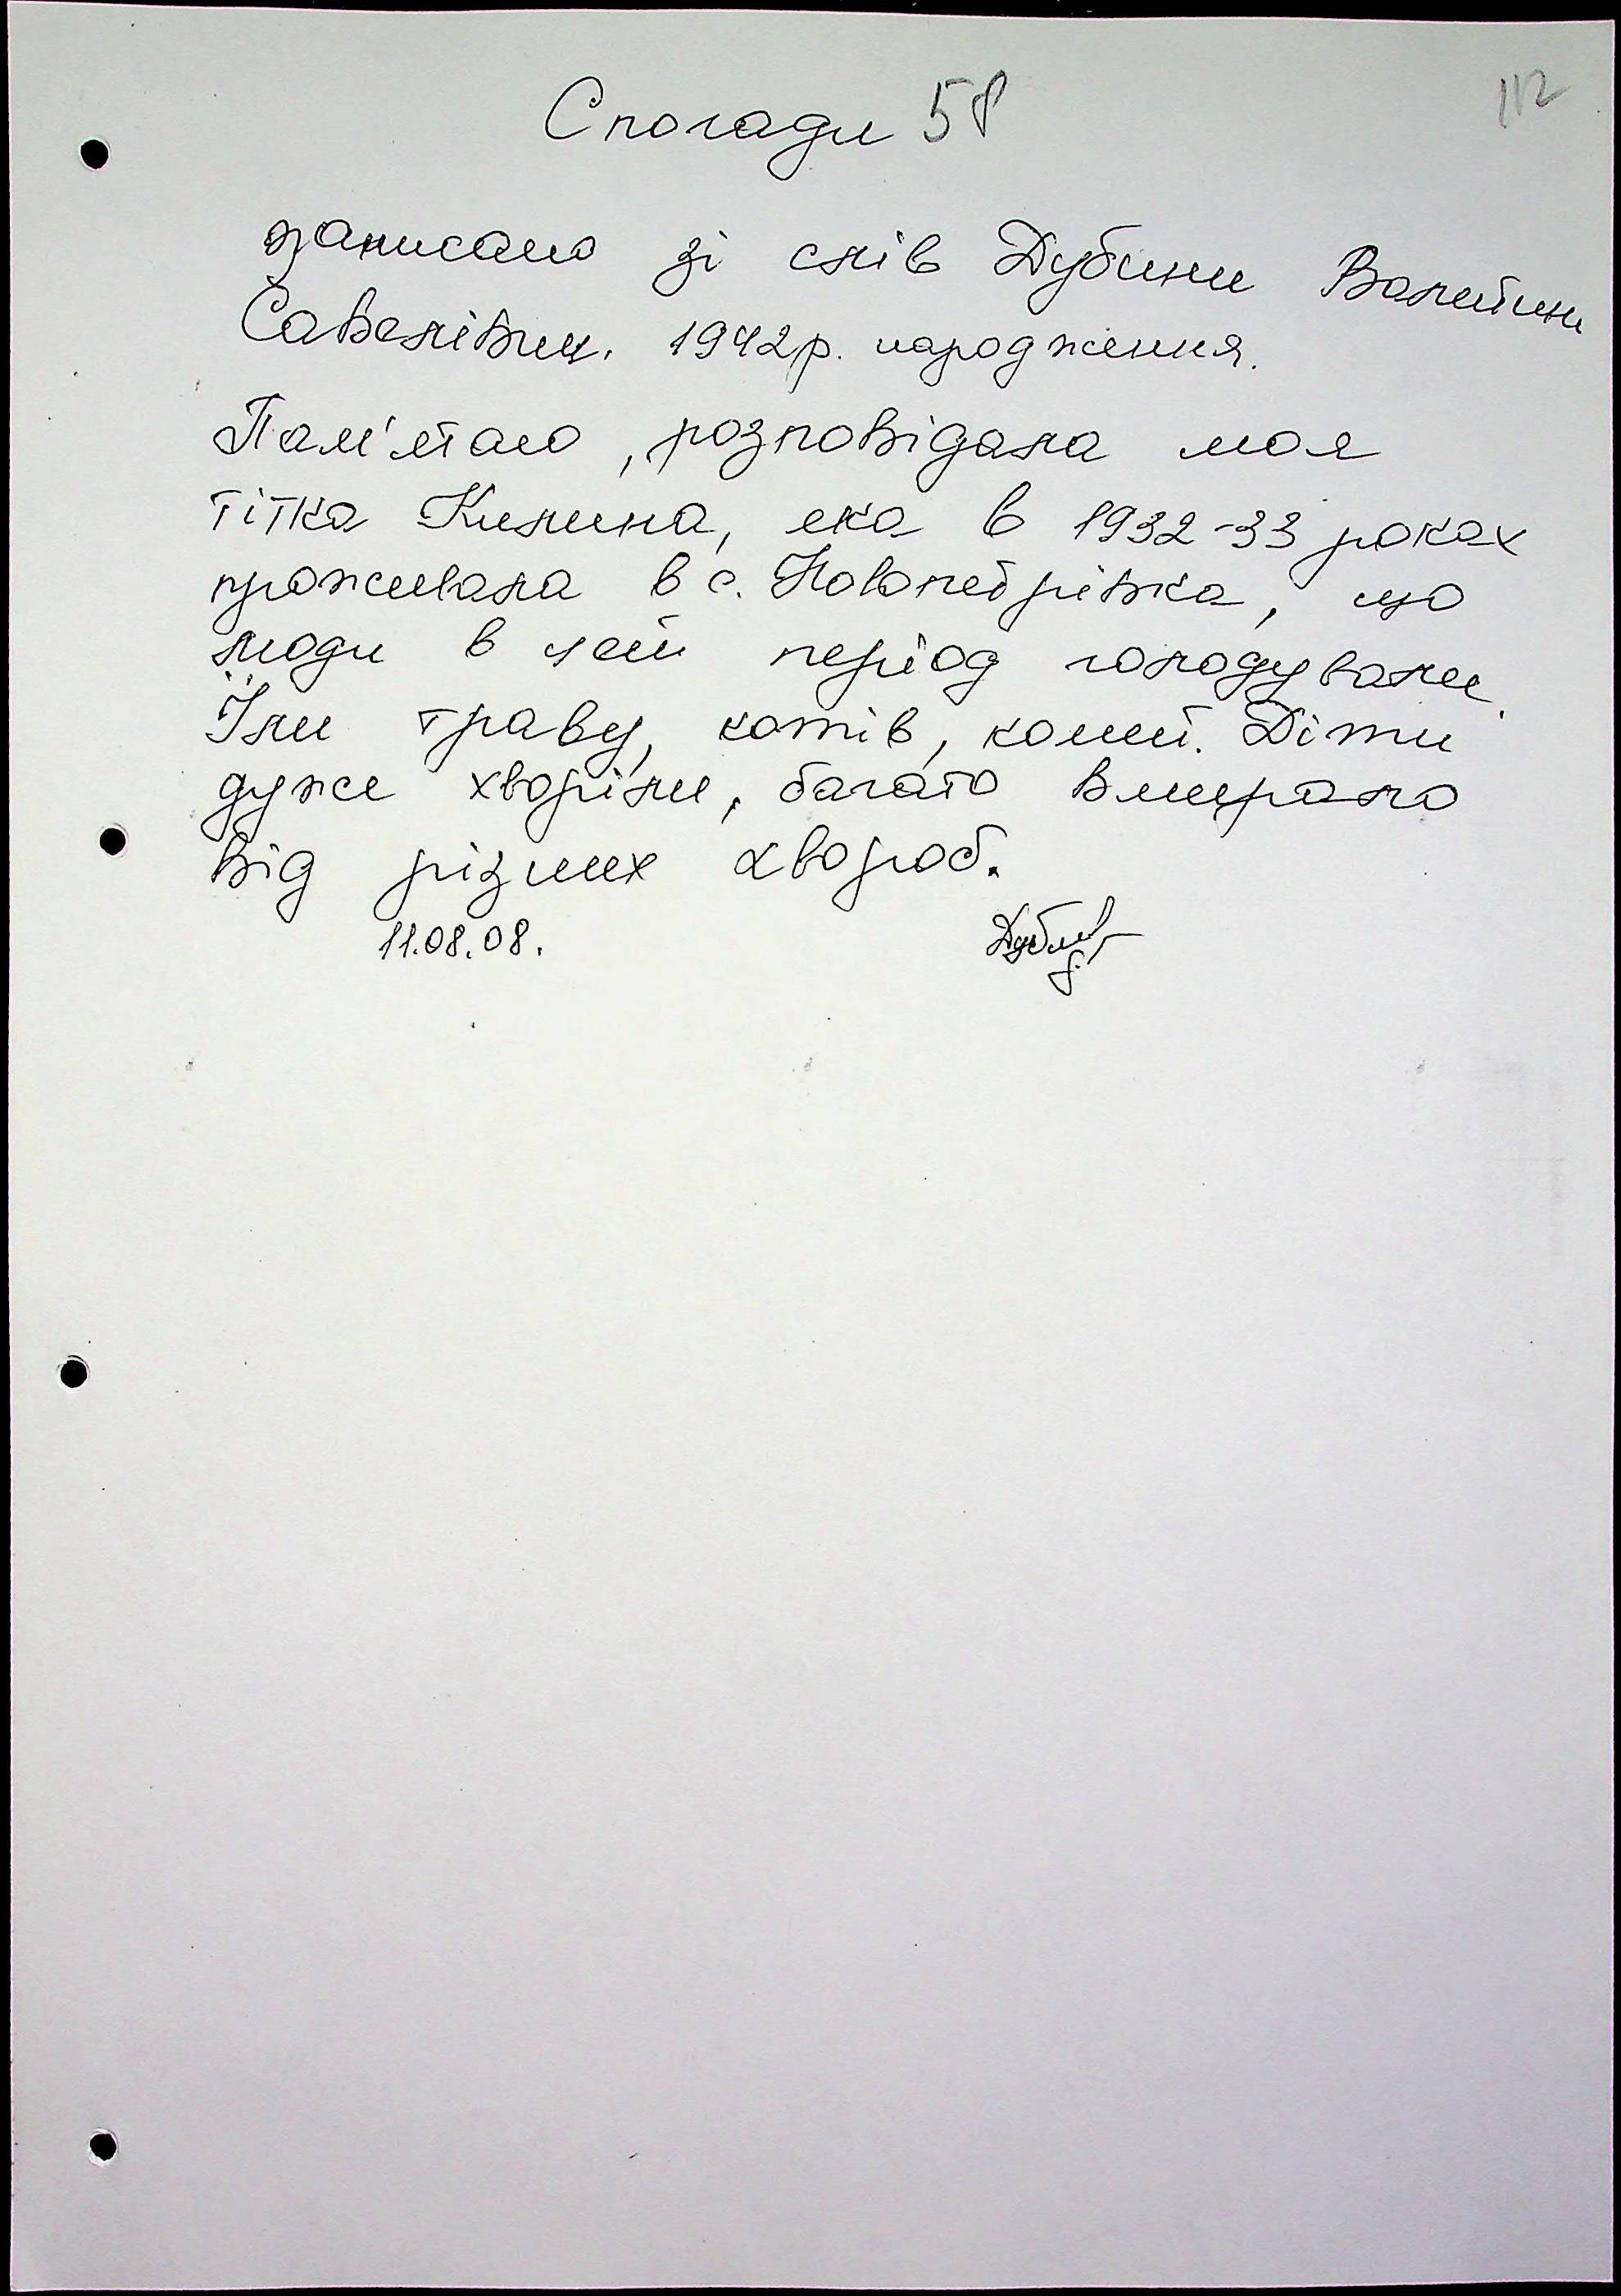 Спогади 58
112
записано зі слів Дубини Валентини
Савеліївни. 1942р. народження.
Пам'ятаю, розповідала моя
тітка Килина, яка в 1932-33 роках
проживала в с. Новопетрівка, що
люди в цей період голодували.
Їли траву, котів, коней. Діти
дуже хворіли, багато вмирало
від різних хвороб.
11.08.08.